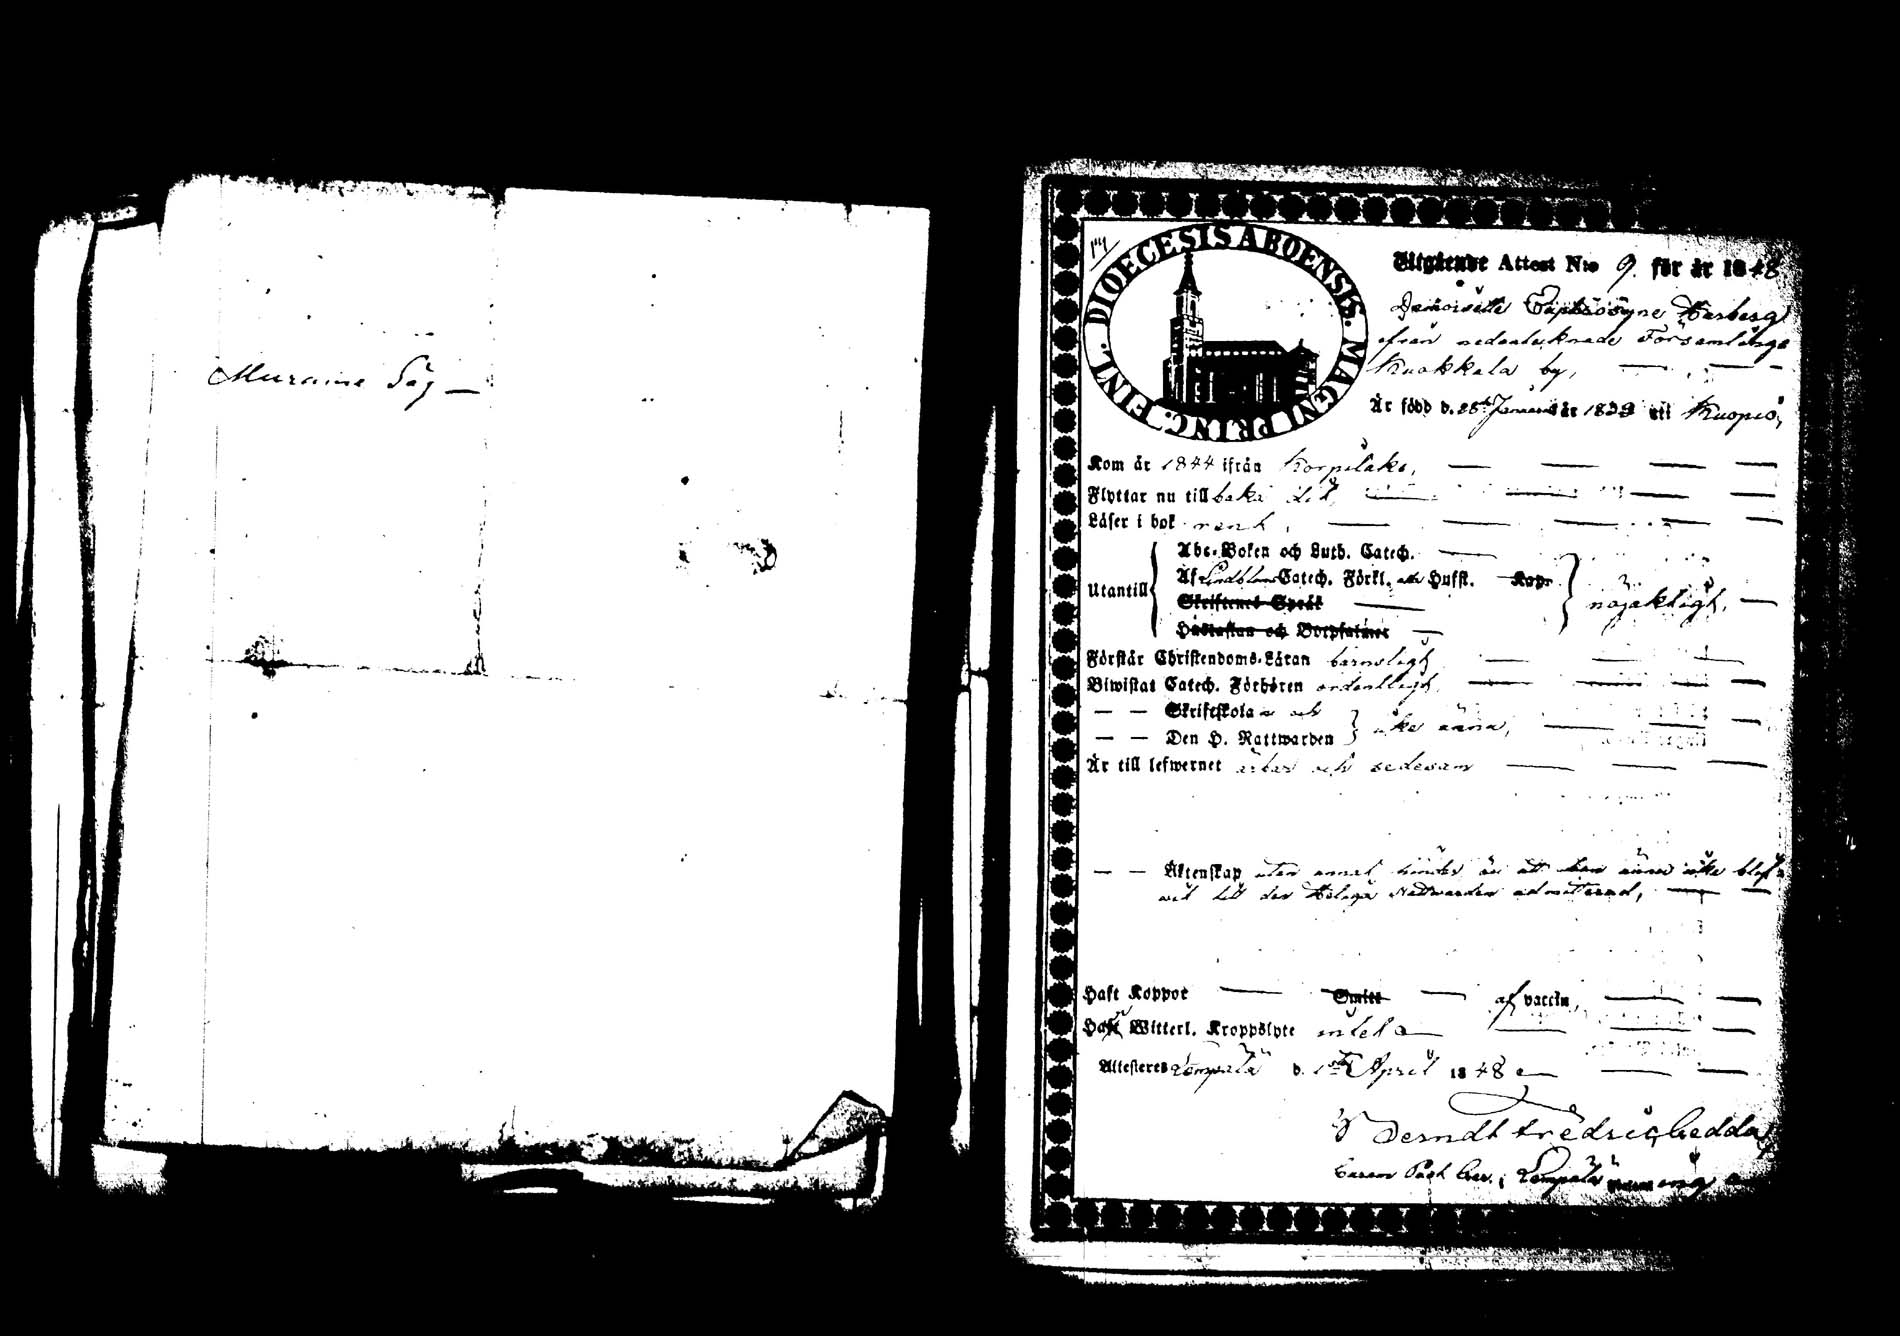 Muramme Såg —
DIOECESIS ABOENSIS. MAGNI PRINC. FINL.
Utgående Attest N:o 9. för år 1848
Demoiselle Euphrosyne Harberg
ifrån nedantecknade Församlings
Kuokkala by,
Är född d. 28 Januarii år 1833 uti Kuopio,
Kom år 1844 ifrån Korpilaks,
Flyttar nu tillbaka dit,
Läser i bok rent,
Utantill
Abc-Boken och Luth. Catech.
Af Lindbloms Catech. Förkl. Husft.
Skriftenes Språk
Hustaflan och Botpsalmer
nöjaktigt,
Förstår Christendoms-Läran barnsligt
Biwistat Catech. Förhören ordentligt,
— — Skriftskola och
— — Den H. Nattwarden
icke ännu,
Är till lefwernet ärbar och sedesam
— — Äktenskap utan annat hinder än att hon ännu icke blif-
wit till den Heliga Nattwarden admitterad,
Haft Koppor — Smitt — af vaccin,
Witterl. Kroppslyte intet
Attesteres Lempälä d. 1 April 1848
Berndt Fredric Gedda
Lempälä